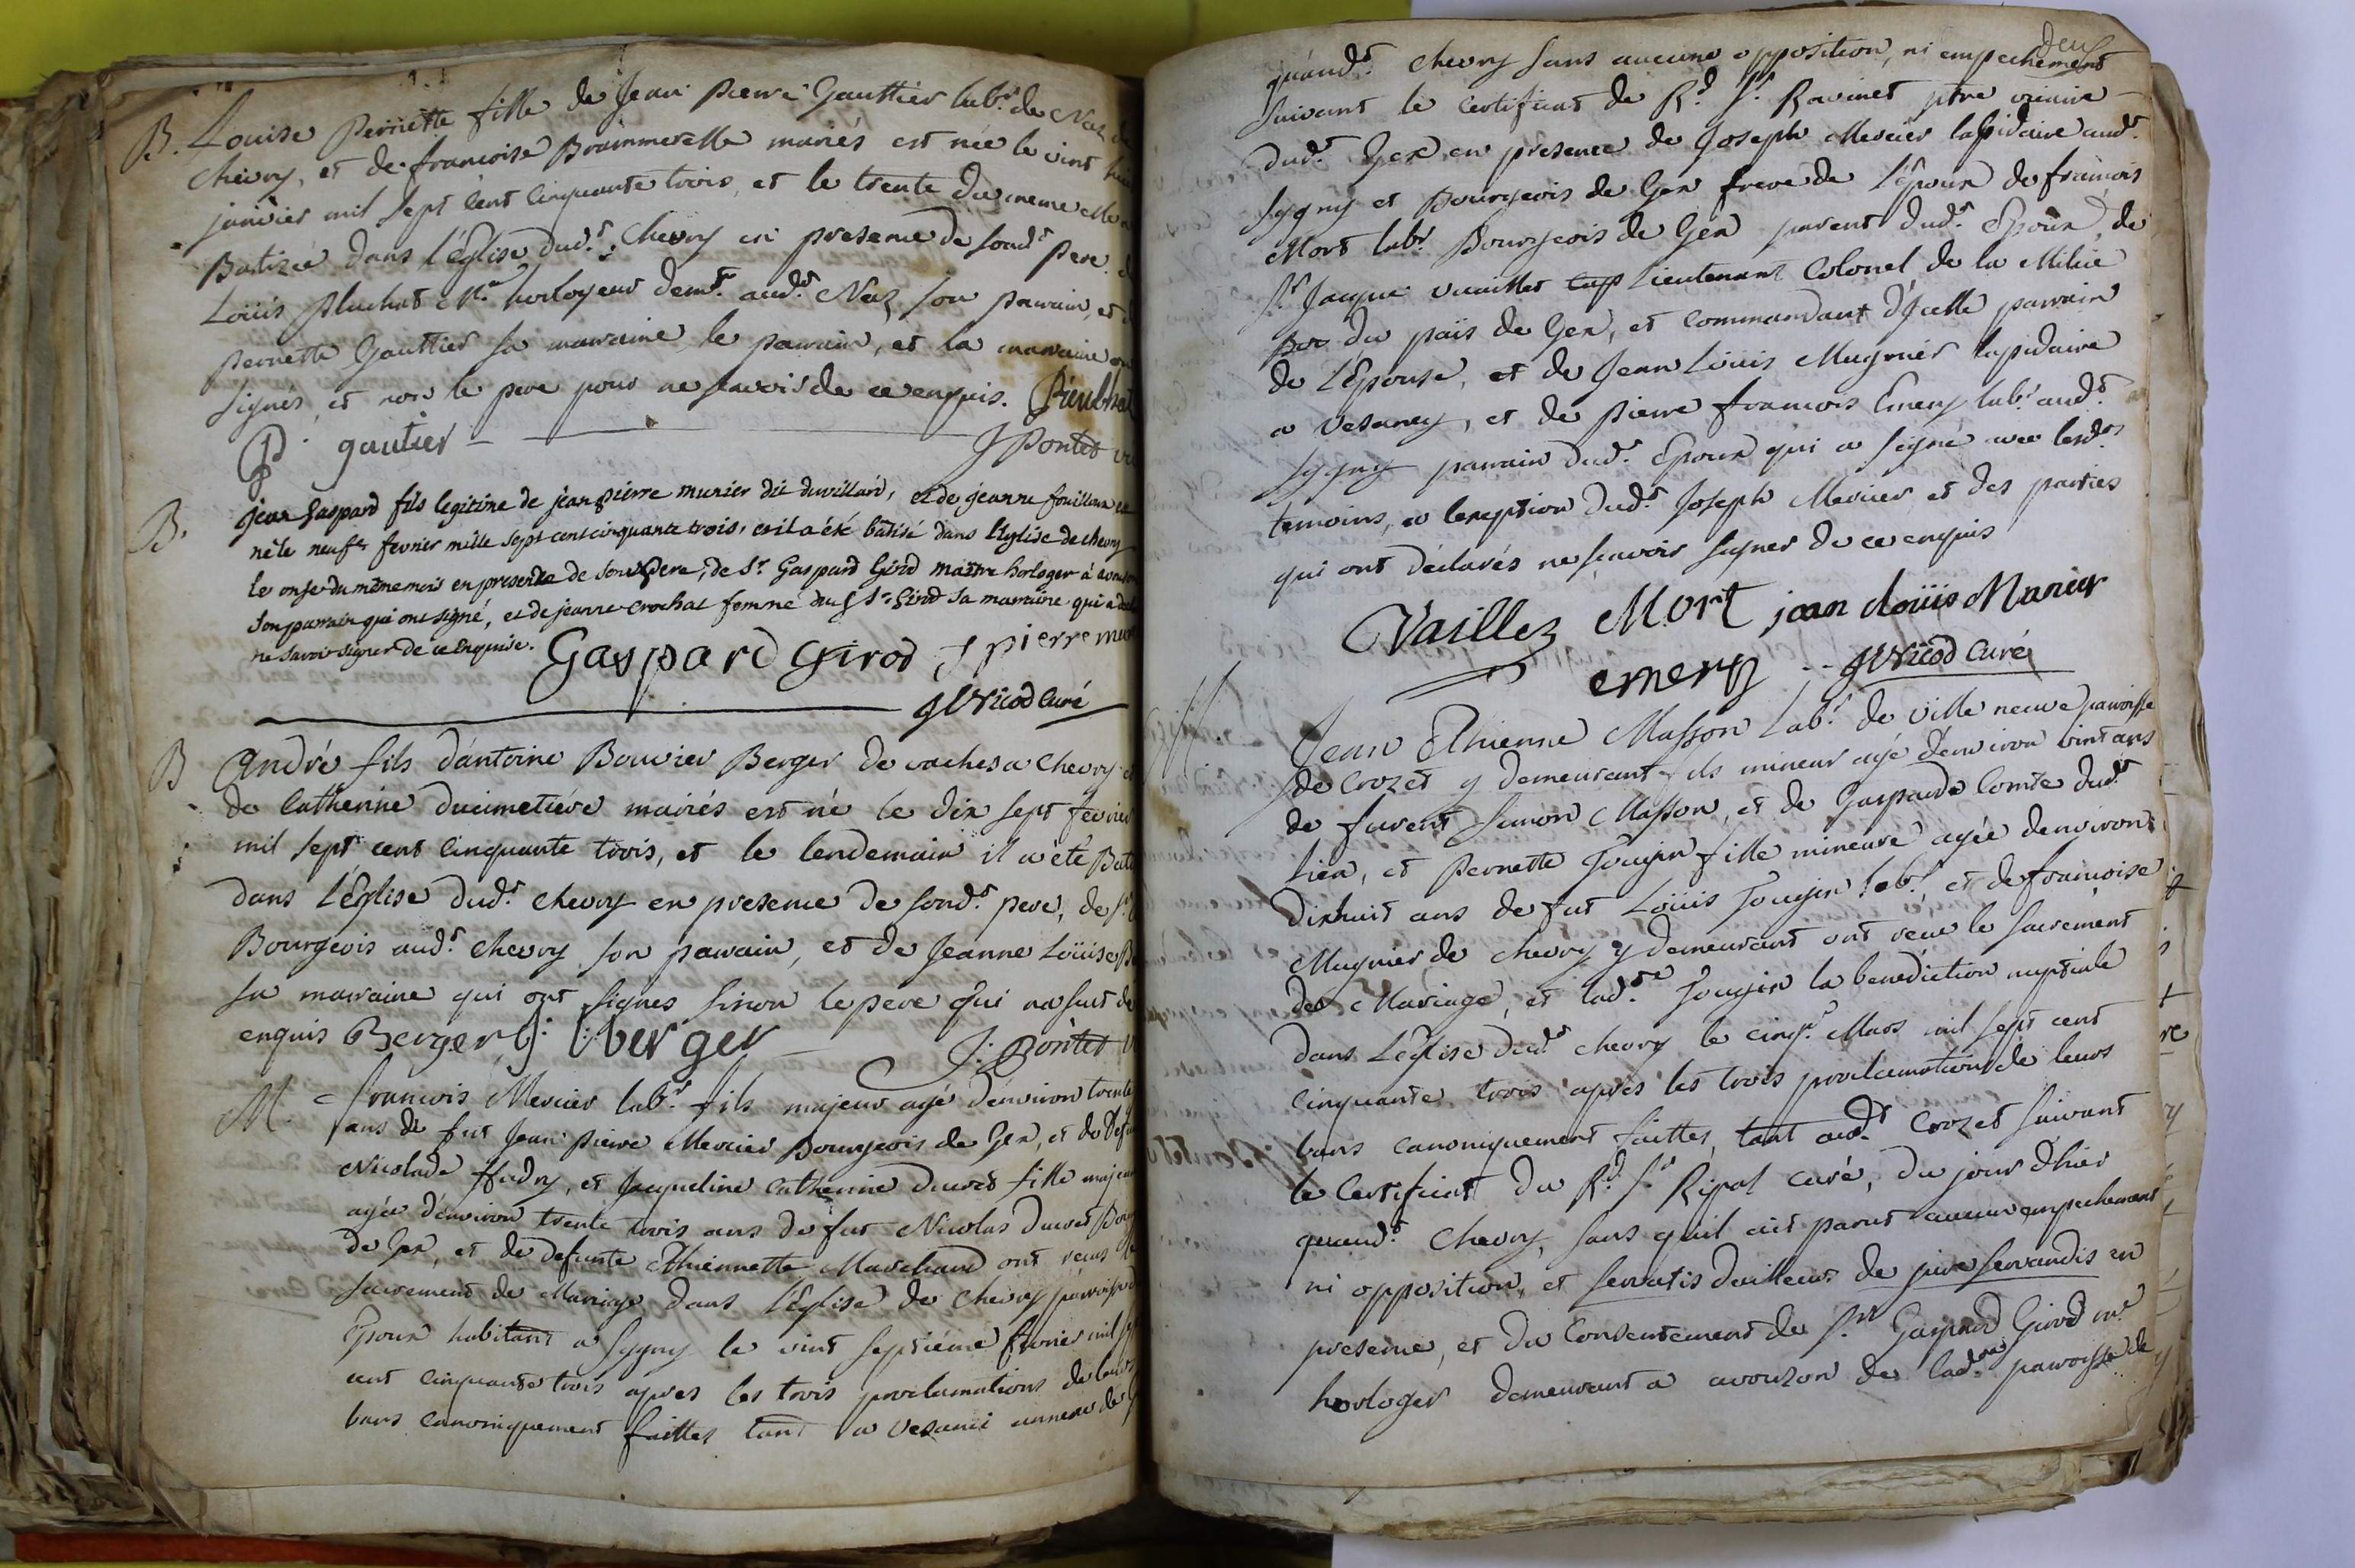 B. Louise Pernette fille de Jean Pierre Gauttier lab.r de Naz de
chevry, et de francoise Brammerelle mariés est née le vint
janvier mil sept cent cinquante trois, et le trente du meme
Batizée dans l'Eglise dud.t Chevry en presence de sond.t pere
Loüis Pluchat M.e horlogeur dem.t aud.t Naz son parrain, et
pernette Gauttier sa marraine, le parrain, et la marraine
signés, et non le pere pour ne scavoir de ce enquis.
P. gautier J Pontet
B. jean Gaspard fils legitime de jean pierre munier dit duvillard, et de jeanne fouilloux
né le neuf.e fevrier mille sept cent cinquante trois, et il a été bâtisé dans l'Eglise de chevry
le onze du même mois en presence de son pere, de S.r Gaspard Girod maitre horloger à
son parrain qui ont signé, et de jeanne crochat femme dud S.r Girod sa marraine qui a
ne savoir signer de ce Enquise. Gaspard Girod J pierre
Nicod curé
B André fils d'antoine Bouvier Berger de vaches a Chevry
de Catherine ducimetiére mariés est né le dix sept fevrier
mil sept cent cinquante trois, et le lendemain il a eté
dans l'Eglise dud.t chevry en presence de sond.t pere, de
Bourgeois aud.t chevry son parrain, et de Jeanne Loüise
sa marraine qui ont signes sinon le pere qui
enquis Berger J: berger J: Pontet
M. francois Mercier lab.r fils majeur agé d'environ trente
ans de fut Jean pierre Mercier Bourgeois de Gex, et de
Nicolade, et Jacqueline Catherine Ducret fille
agée d'environ trente trois ans de fut Nicolas Ducret
de Gex, et de defunte Ethiennette Marchand ont receus
sacrement de Mariage dans l'Eglise de Chevry
Epoux habitant a Sygny le vint septiéme fevrier mil
cent cinquante trois apres les trois proclamations de leurs
bans canoniquement faittes tant a vesanci annexe de
deux
quaud.t chevry sans aucune opposition, ni empechement
suivant le certificat de R.d S.r Ravinet ptre vicaire
dud.t Gex en presence de Joseph Mercier lapidaire aud.t
Sygny et Bourgeois de Gex frere de l'Epoux de francois
Mort lab.r Bourgeois de Gex parent dud.t Epoux, de
S.r Jacque vuaillet Lieutenant Colonel de la Milice
du païs de Gex, et commandant d'Jcelle parrain
de l'Epouse, et de Jean Loüis Mugnier lapidaire
a Vesancy, et de pierre francois Emery lab.r aud.t
Sygny parrain dud.t Epoux qui a signé avec lesd.ts
temoins, a lexception dud.t Joseph Mercier et des parties
qui ont déclarés ne scavoir signer de ce enquis
Vaillez Mort jean Loüis Munier
emery Nicod Curé
M Jean Ethienne Masson Lab.r de ville neuve paroisse
de Crozet y demeurant fils mineur agé d'environ vint ans
de furent Simon Masson, et de Gasparde Comte dud.t
lieu, et Pernette Gougin fille mineure agée denviron
dixhuit ans de fut Loüis Gougin lab.r, et de francoise
Mugnier de chevry y demeurant ont receu le sacrement
de Mariage, et lad.te Gougin la benediction nuptiale
dans l'Eglise dud.t chevry le cinq.e Mars mil sept cent
cinquante trois apres les trois proclamations de leurs
bans canoniquement faittes, tant aud.t Crozet suivant
le certificat du R.d S.r Ripal curé, du jour d'hier
quaud.t Chevry, sans quil ait parut aucun empechement
ni opposition, et servatis dailleurs de jure servandis en
presence, et du consentement de S.r Gaspard Girod m.e
horloger demeurant a avouzon de lad.te paroisse de